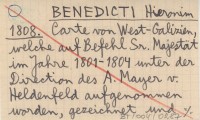 BENEDICTI Hieronim
1808. Carte von West-Galizien,
welche auf Befehl Sr. Majestät
im Jahre 1801-1804 unter der
Direction des A. Mayer v.
Heldenfeld aufgenommen
worden, gezeichnet und %